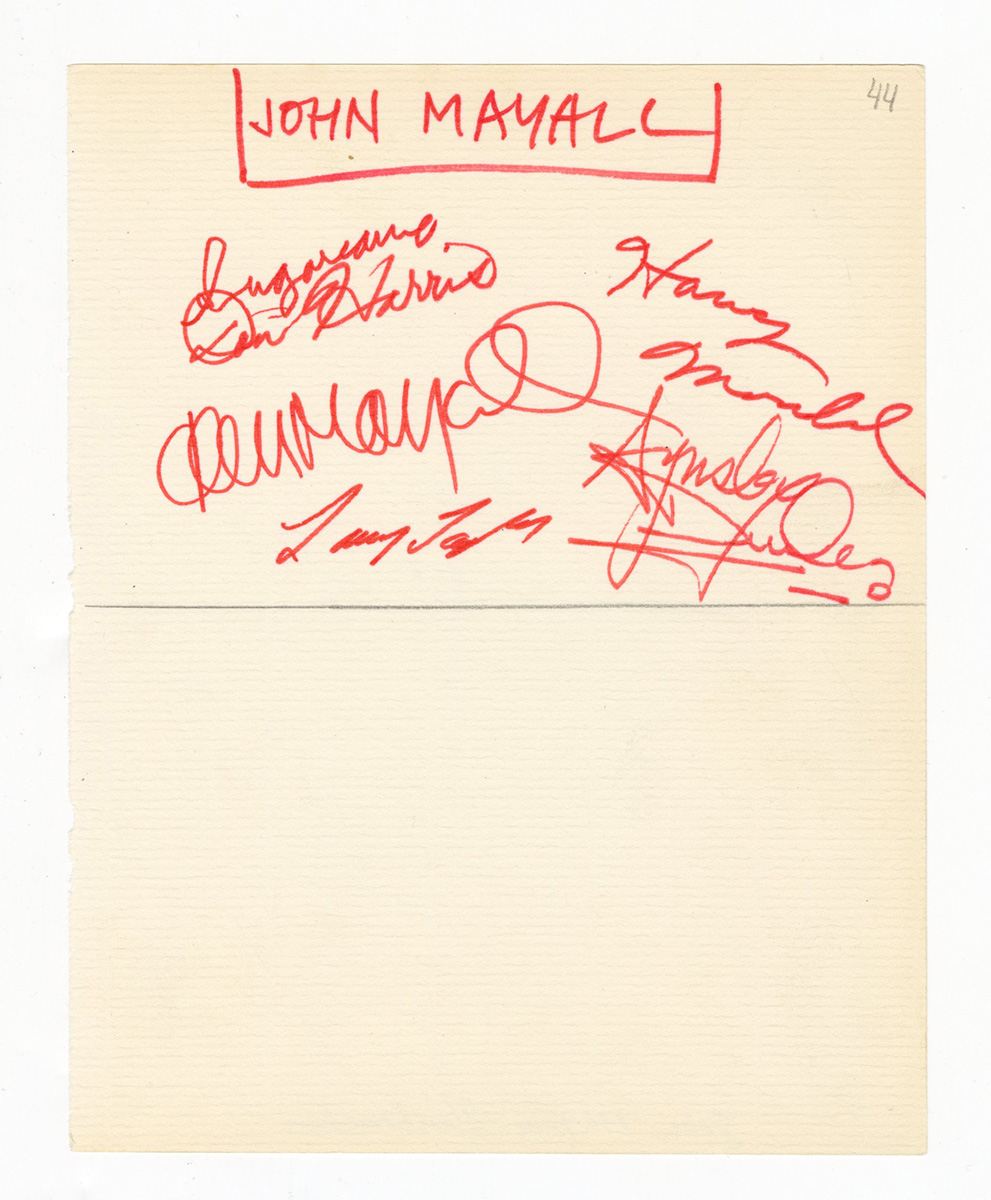 44
JOHN MAYALL
Sugarcane
Don Harris
Harvey
Mandel
John Mayall
Aynsley
Dunbar
Larry Taylor